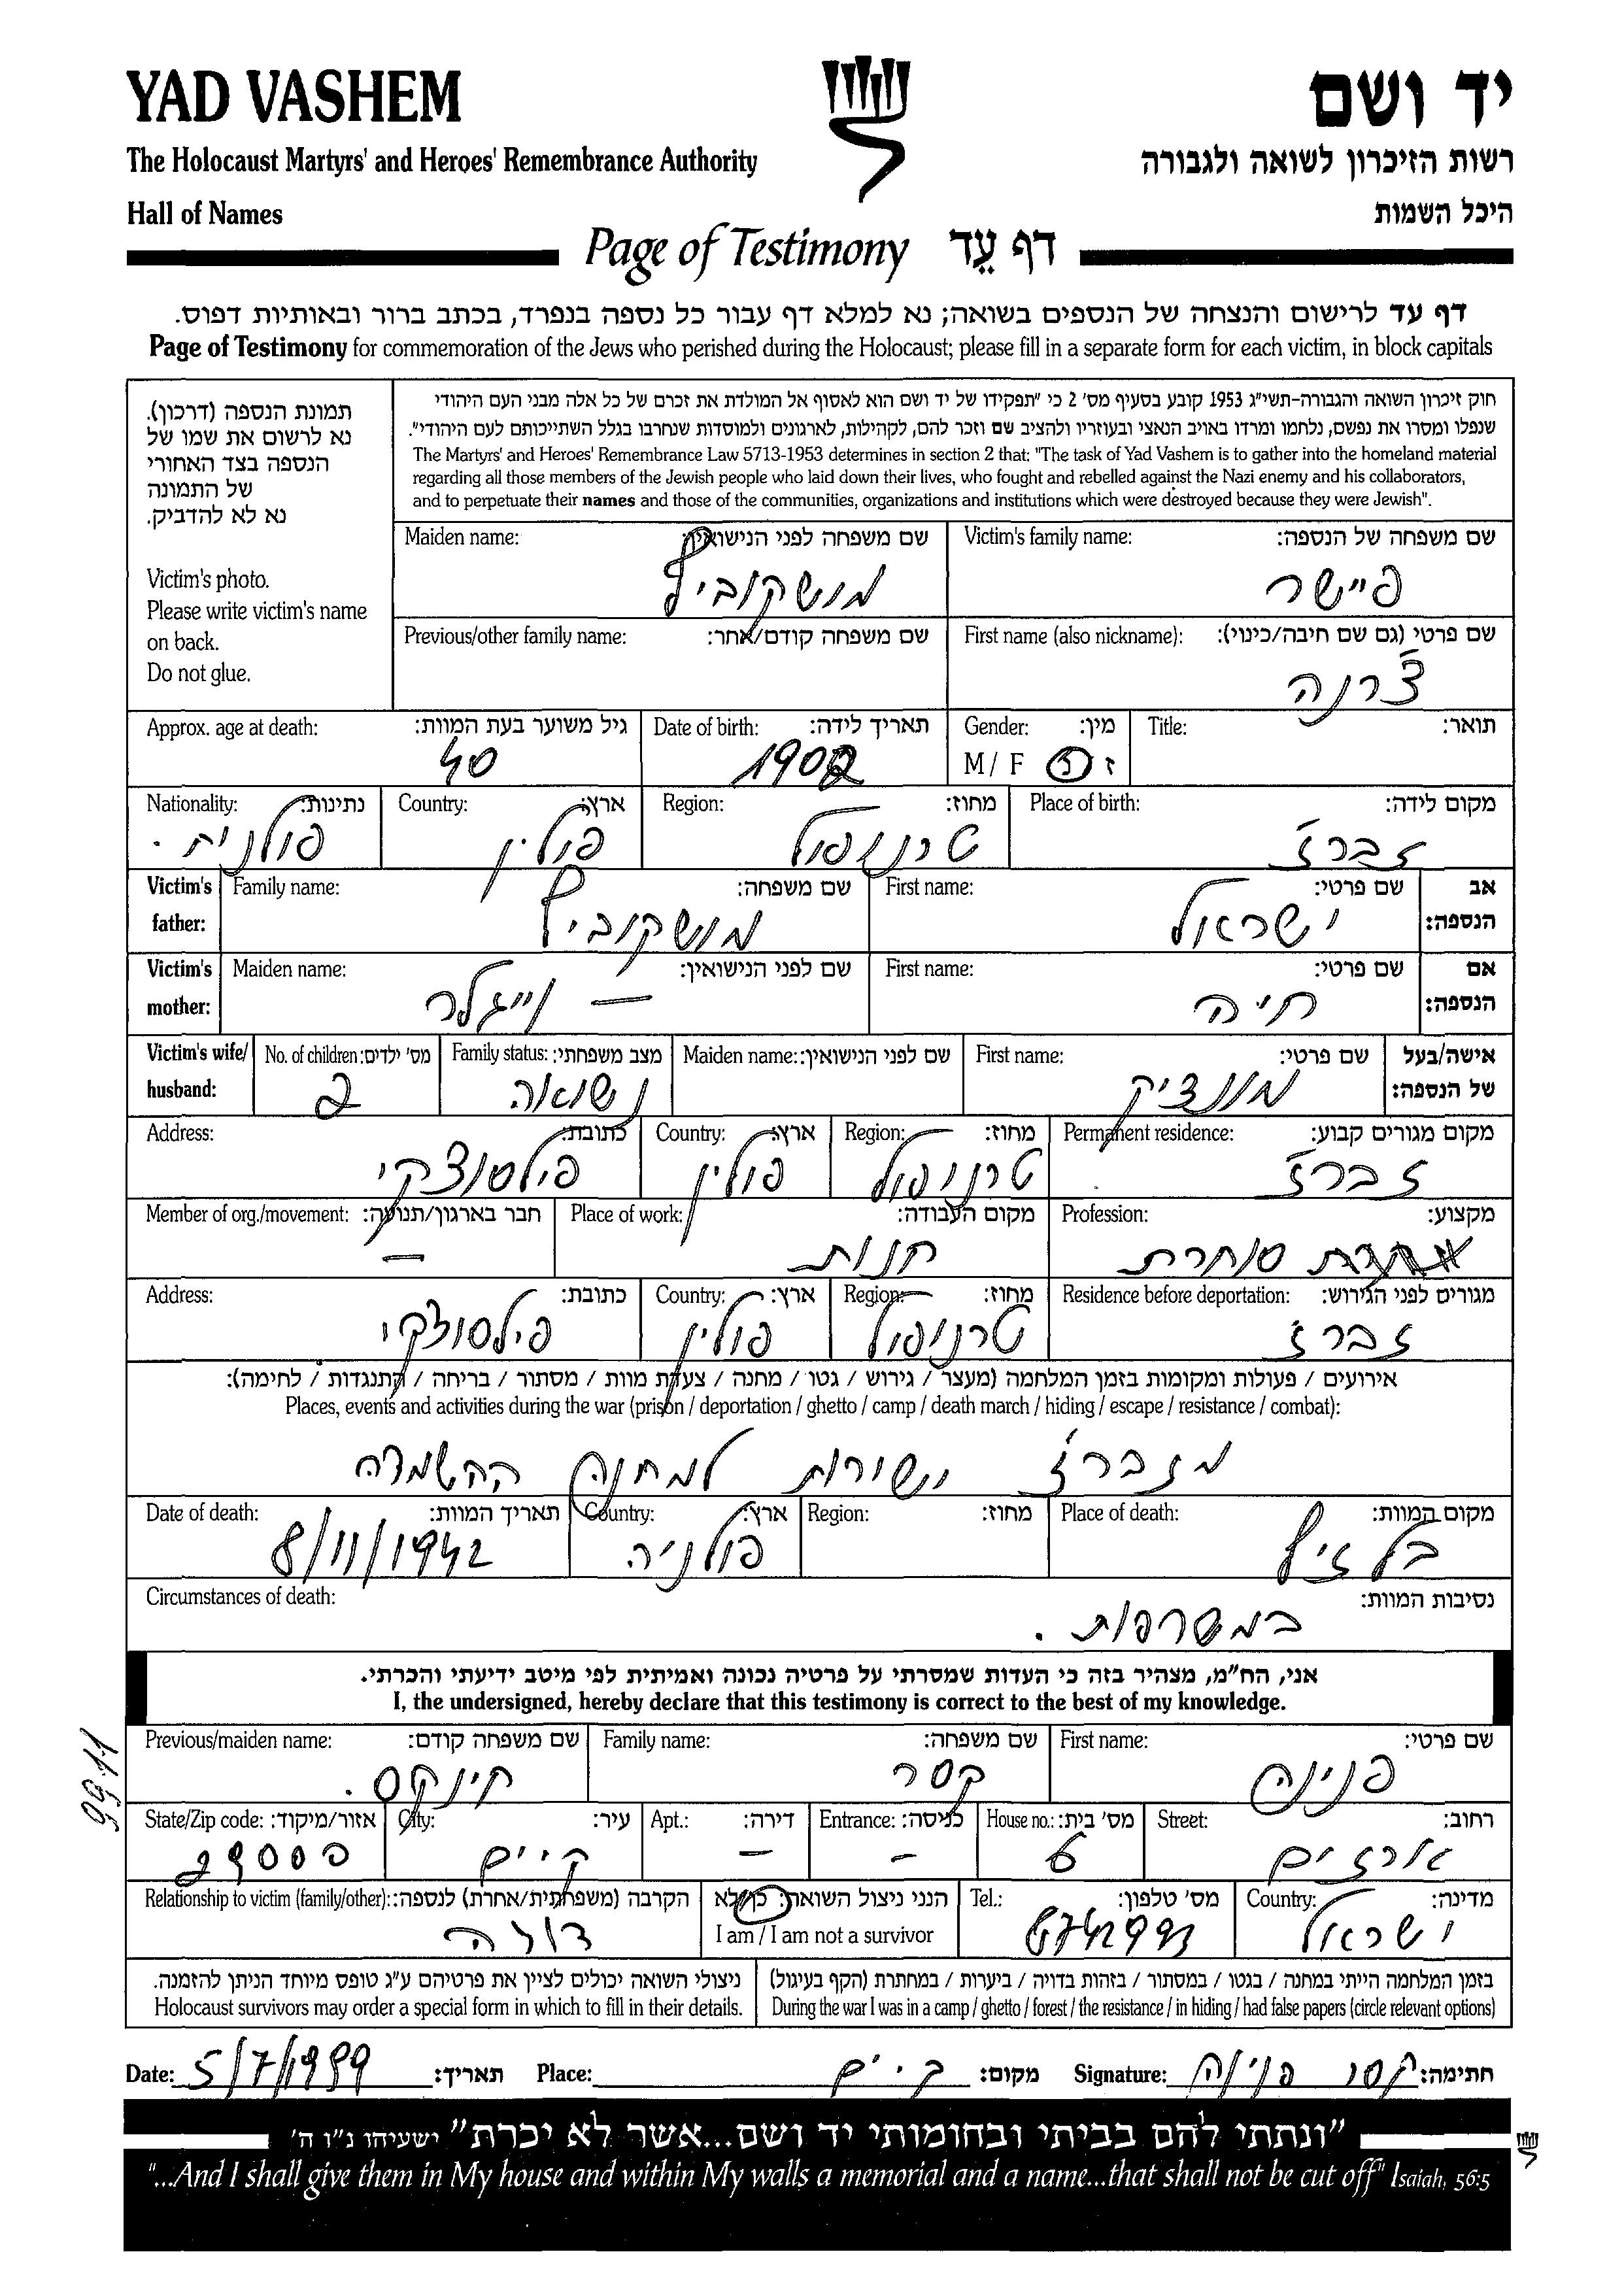 YAD VASHEM
יד ושם
The Holocaust Martyrs' and Heroes' Remembrance Authority
רשות הזיכרון לשואה ולגבורה
Hall of Names
היכל השמות
Page of Testimony דף עֵד
דף עד לרישום והנצחה של הנספים בשואה; נא למלא דף עבור כל נספה בנפרד, בכתב ברור ובאותיות דפוס.
Page of Testimony for commemoration of the Jews who perished during the Holocaust; please fill in a separate form for each victim, in block capitals
תמונת הנספה (דרכון).
נא לרשום את שמו של
הנספה בצד האחורי
של התמונה
נא לא להדביק.
Victim's photo.
Please write victim's name
on back.
Do not glue.
חוק זיכרון השואה והגבורה-תשי"ג 1953 קובע בסעיף מס' 2 כי "תפקידו של יד ושם הוא לאסוף אל המולדת את זכרם של כל אלה מבני העם היהודי
שנפלו ומסרו את נפשם, נלחמו ומרדו באויב הנאצי ובעוזריו ולהציב שם וזכר להם, לקהילות, לארגונים ולמוסדות שנחרבו בגלל השתייכותם לעם היהודי".
The Martyrs' and Heroes' Remembrance Law 5713-1953 determines in section 2 that: "The task of Yad Vashem is to gather into the homeland material
regarding all those members of the Jewish people who laid down their lives, who fought and rebelled against the Nazi enemy and his collaborators,
and to perpetuate their names and those of the communities, organizations and institutions which were destroyed because they were Jewish".
Victim's family name: שם משפחה של הנספה:
פיישר
Maiden name: שם משפחה לפני הנישואין:
מושקוביץ
First name (also nickname): שם פרטי (גם שם חיבה/כינוי):
צ'רנה
Previous/other family name: שם משפחה קודם/אחר:
Title: תואר:
Gender: מין:
M / F ז נ
Date of birth: תאריך לידה:
1902
Approx. age at death: גיל משוער בעת המוות:
40
Place of birth: מקום לידה:
זברז'
Region: מחוז:
טרנופול
Country: ארץ:
פולין
Nationality: נתינות:
פולנית.
Victim's father: אב הנספה:
First name: שם פרטי:
ישראל
Family name: שם משפחה:
מושקוביץ
Victim's mother: אם הנספה:
First name: שם פרטי:
חיה
Maiden name: שם לפני הנישואין:
— וייגלר
Victim's wife/ husband: אישה/בעל של הנספה:
First name: שם פרטי:
מונציק
Maiden name: שם לפני הנישואין:
Family status: מצב משפחתי:
נשואה
No. of children: מס' ילדים:
2
Permanent residence: מקום מגורים קבוע:
זברז'
Region: מחוז:
טרנופול
Country: ארץ:
פולין
Address: כתובת:
פילסוצקי
Profession: מקצוע:
סוחרת
Place of work: מקום העבודה:
חנות
Member of org./movement: חבר בארגון/תנועה:
—
Residence before deportation: מגורים לפני הגירוש:
זברז'
Region: מחוז:
טרנופול
Country: ארץ:
פולין
Address: כתובת:
פילסוצקי
אירועים / פעולות ומקומות בזמן המלחמה (מעצר / גירוש / גטו / מחנה / צעדת מוות / מסתור / בריחה / התנגדות / לחימה):
Places, events and activities during the war (prison / deportation / ghetto / camp / death march / hiding / escape / resistance / combat):
מזברז' ישירות למחנה ההשמדה
Place of death: מקום המוות:
בלזיץ
Region: מחוז:
Country: ארץ:
פולניה
Date of death: תאריך המוות:
8/11/1942
Circumstances of death: נסיבות המוות:
במשרפות.
אני, הח"מ, מצהיר בזה כי העדות שמסרתי על פרטיה נכונה ואמיתית לפי מיטב ידיעתי והכרתי.
I, the undersigned, hereby declare that this testimony is correct to the best of my knowledge.
First name: שם פרטי:
פנינה
Family name: שם משפחה:
קסר
Previous/maiden name: שם משפחה קודם:
פינקס.
Street: רחוב:
ארזים
House no.: מס' בית:
6
Entrance: כניסה:
–
Apt.: דירה:
–
City: עיר:
ק.ים
State/Zip code: אזור/מיקוד:
29000
Country: מדינה:
ישראל
Tel.: מס' טלפון:
8742993
הנני ניצול השואה: כן/לא
I am / I am not a survivor
Relationship to victim (family/other): הקרבה (משפחתית/אחרת) לנספה:
דודה
בזמן המלחמה הייתי במחנה / בגטו / במסתור / בזהות בדויה / ביערות / במחתרת (הקף בעיגול)
During the war I was in a camp / ghetto / forest / the resistance / in hiding / had false papers (circle relevant options)
ניצולי השואה יכולים לציין את פרטיהם ע"ג טופס מיוחד הניתן להזמנה.
Holocaust survivors may order a special form in which to fill in their details.
Date: 5/7/1999 תאריך: Place: ק.ים מקום: Signature: קסר פנינה חתימה:
"ונתתי להם בביתי ובחומותי יד ושם...אשר לא יכרת" ישעיהו נ"ו ה'
"...And I shall give them in My house and within My walls a memorial and a name...that shall not be cut off" Isaiah, 56:5